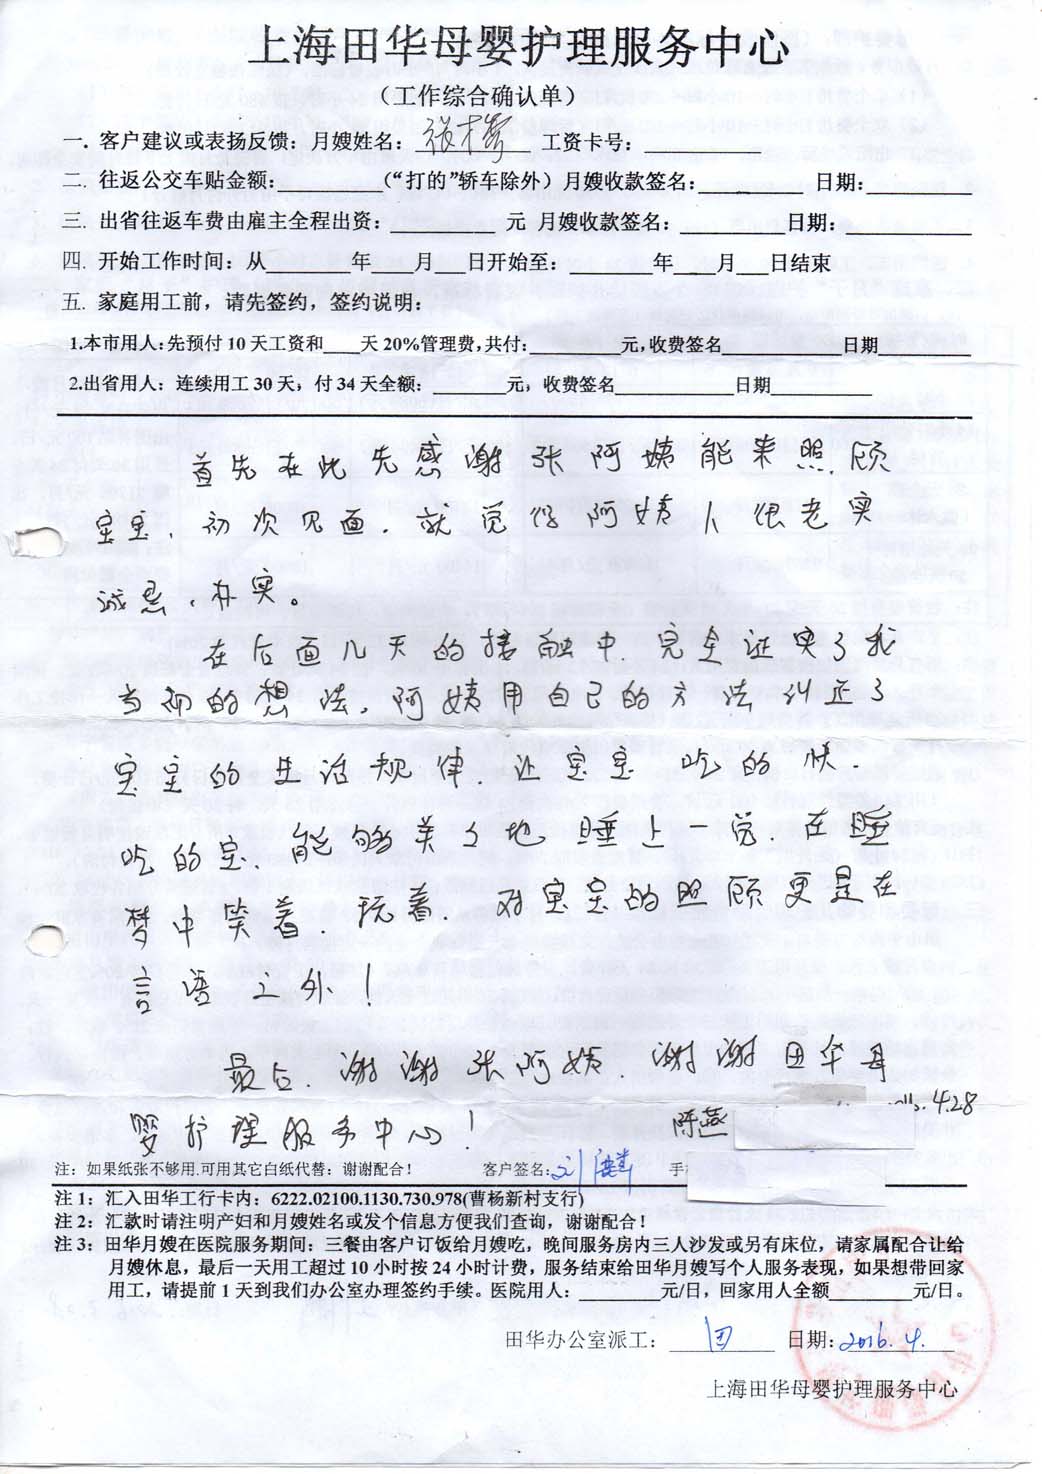 上海田华母婴护理服务中心
(工作综合确认单)
一.客户建议或表扬反馈:月嫂姓名:张 工资卡号:
二.往返公交车贴金额:(“打的”轿车除外)月嫂收款签名: 日期:
三.出省往返车费由雇主全程出资: 元 月嫂收款签名: 日期:
四.开始工作时间:从 年 月 日开始至: 年 月 日结束
五.家庭用工前,请先签约,签约说明:
1.本市用人:先预付10天工资和 天20%管理费,共付: 元,收费签名 日期
2.出省用人:连续用工30天,付34天全额: 元,收费签名 日期
首先在此先感谢张阿姨能来照顾
宝宝,初次见面.就觉得阿姨人很老实
诚恳、朴实.
在后面几天的接触中完全证实了我
当初的想法,阿姨用自己的方法纠正了
宝宝的生活规律让宝宝吃的
吃的宝.能够美美地睡上一觉.在睡
梦中笑着.玩着.对宝宝的照顾更是在
言语之外!
最后.谢谢张阿姨.谢谢田华母
婴护理服务中心!
陈燕 4.28
注:如果纸张不够用.可用其它白纸代替:谢谢配合! 客户签名:刘 手
注1:汇入田华工行卡内:6222.02100.1130.730.978(曹杨新村支行)
注2:汇款时请注明产妇和月嫂姓名或发个信息方便我们查询,谢谢配合!
注3:田华月嫂在医院服务期间:三餐由客户订饭给月嫂吃,晚间服务房内三人沙发或另有床位,请家属配合让给
月嫂休息,最后一天用工超过10小时按24小时计费,服务结束给田华月嫂写个人服务表现,如果想带回家
用工,请提前1天到我们办公室办理签约手续。医院用人: 元/日,回家用人全额 元/日。
田华办公室派工:田 日期:2016.4.
上海田华母婴护理服务中心